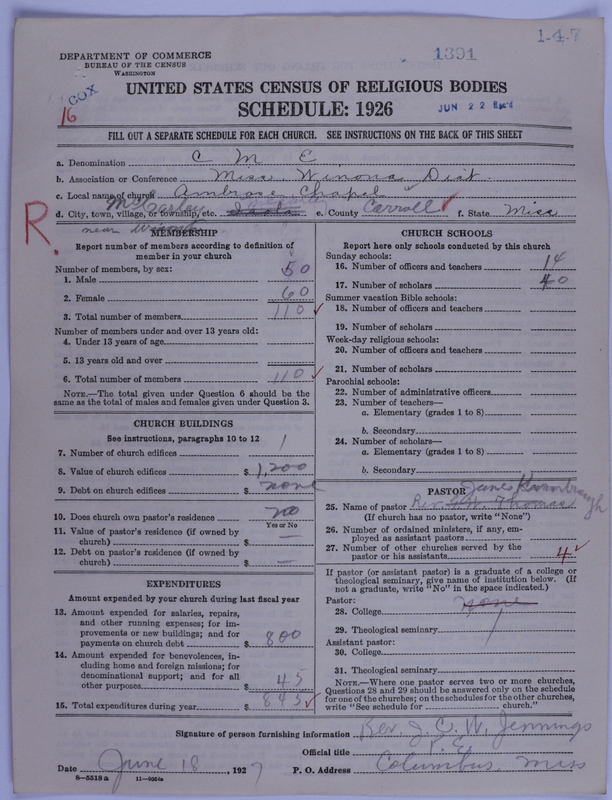 1-4-7
1391
DEPARTMENT OF COMMERCE
BUREAU OF THE CENSUS
WASHINGTON
COX
16
UNITED STATES CENSUS OF RELIGIOUS BODIES
SCHEDULE: 1926
JUN 22 Rec'd
FILL OUT A SEPARATE SCHEDULE FOR EACH CHURCH. SEE INSTRUCTIONS ON THE BACK OF THIS SHEET
a. Denomination C M E
b. Association or Conference Miss Winona Dist
c. Local name of church Ambrose Chapel
d. City, town, village, or township, etc. McCarley e. County Carroll f. State Miss
R. near
MEMBERSHIP
Report number of members according to definition of member in your church
Number of members, by sex:
1. Male 50
2. Female 60
3. Total number of members 110
Number of members under and over 13 years old:
4. Under 13 years of age
5. 13 years old and over
6. Total number of members 110
NOTE.—The total given under Question 6 should be the
same as the total of males and females given under Question 3.
CHURCH BUILDINGS
See instructions, paragraphs 10 to 12
7. Number of church edifices 1
8. Value of church edifices $ 1,200
9. Debt on church edifices $ none
10. Does church own pastor's residence no
Yes or No
11. Value of pastor's residence (if owned by
church) $ —
12. Debt on pastor's residence (if owned by
church) $ —
EXPENDITURES
Amount expended by your church during last fiscal year
13. Amount expended for salaries, repairs,
and other running expenses; for im-
provements or new buildings; and for
payments on church debt $ 800
14. Amount expended for benevolences, in-
cluding home and foreign missions; for
denominational support; and for all
other purposes $ 45
15. Total expenditures during year $ 845
CHURCH SCHOOLS
Report here only schools conducted by this church
Sunday schools:
16. Number of officers and teachers 14
17. Number of scholars 40
Summer vacation Bible schools:
18. Number of officers and teachers
19. Number of scholars
Week-day religious schools:
20. Number of officers and teachers
21. Number of scholars
Parochial schools:
22. Number of administrative officers
23. Number of teachers—
a. Elementary (grades 1 to 8)
b. Secondary
24. Number of scholars—
a. Elementary (grades 1 to 8)
b. Secondary
PASTOR James
25. Name of pastor Rev. Thomas
(If church has no pastor, write "None")
26. Number of ordained ministers, if any, em-
ployed as assistant pastors
27. Number of other churches served by the
pastor or his assistants 4
If pastor (or assistant pastor) is a graduate of a college or
theological seminary, give name of institution below. (If
not a graduate, write "No" in the space indicated.)
Pastor:
28. College none
29. Theological seminary
Assistant pastor:
30. College
31. Theological seminary
NOTE.—Where one pastor serves two or more churches,
Questions 28 and 29 should be answered only on the schedule
for one of the churches; on the schedules for the other churches,
write "See schedule for church."
Signature of person furnishing information Rev. J. C. W. Jennings
Official title P. E.
Date June 18, 1927 P. O. Address Columbus Miss
8—5518 a